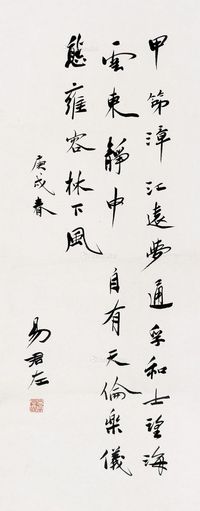 甲第漳江遠夢通孚和士望海
雲東靜中自有天倫樂儀
態雍容林下風
庚戌春
易君左